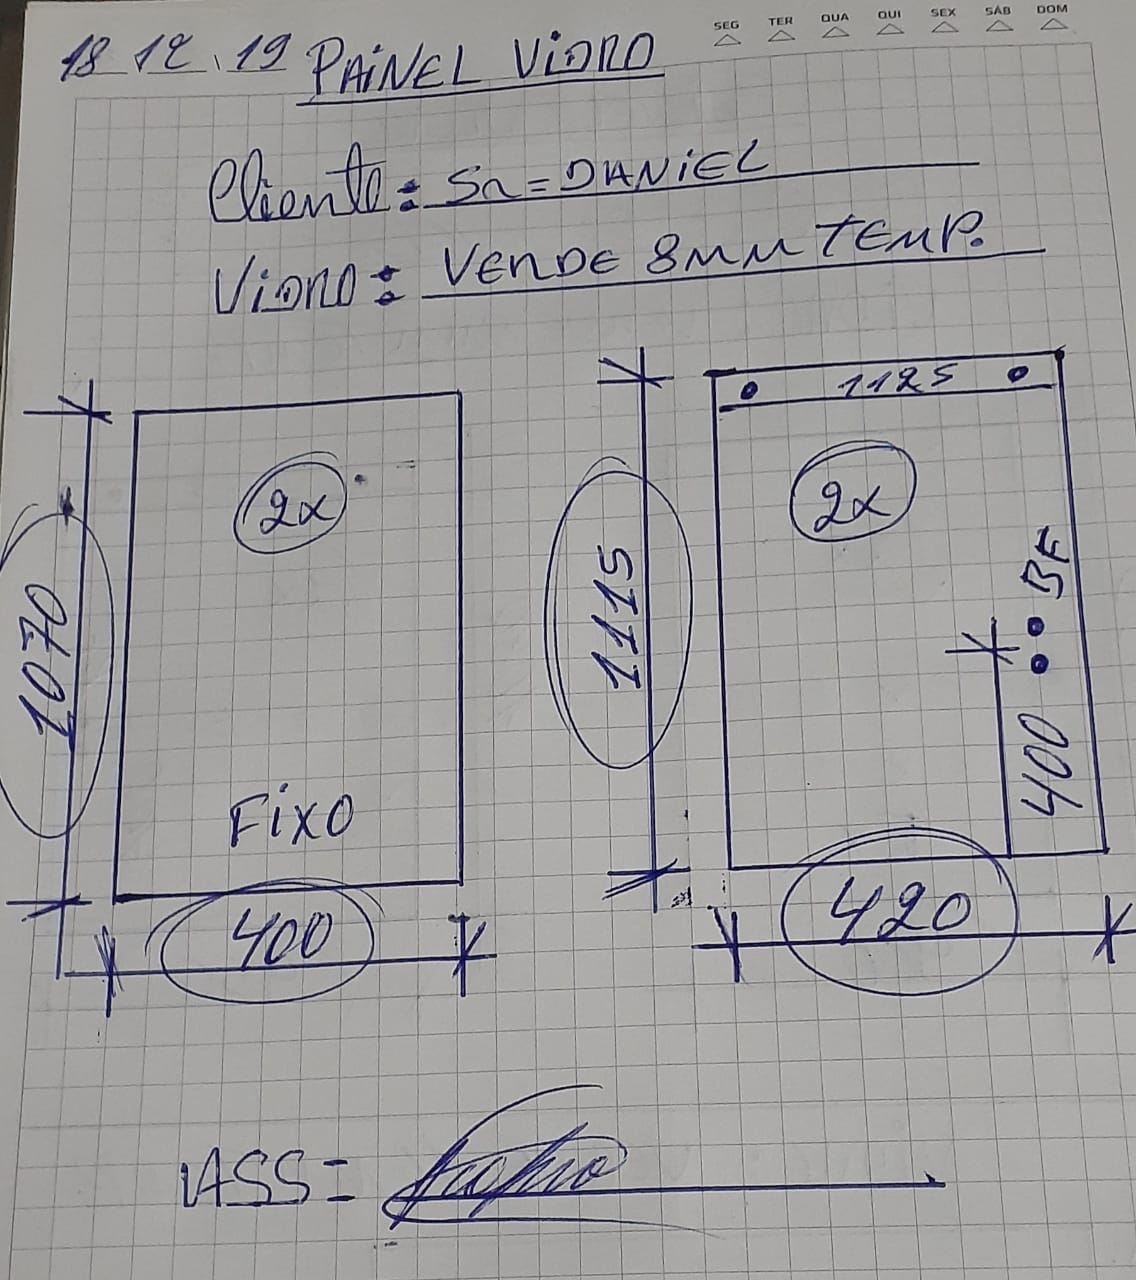 SEG TER QUA QUI SEX SÁB DOM
18 12 . 19 PAINEL VIDRO
Cliente: Sr = DANIEL
VIDRO: VERDE 8MM TEMP.
1125
2x
2x
1070
1115
BF
400
FIXO
400
420
ASS =